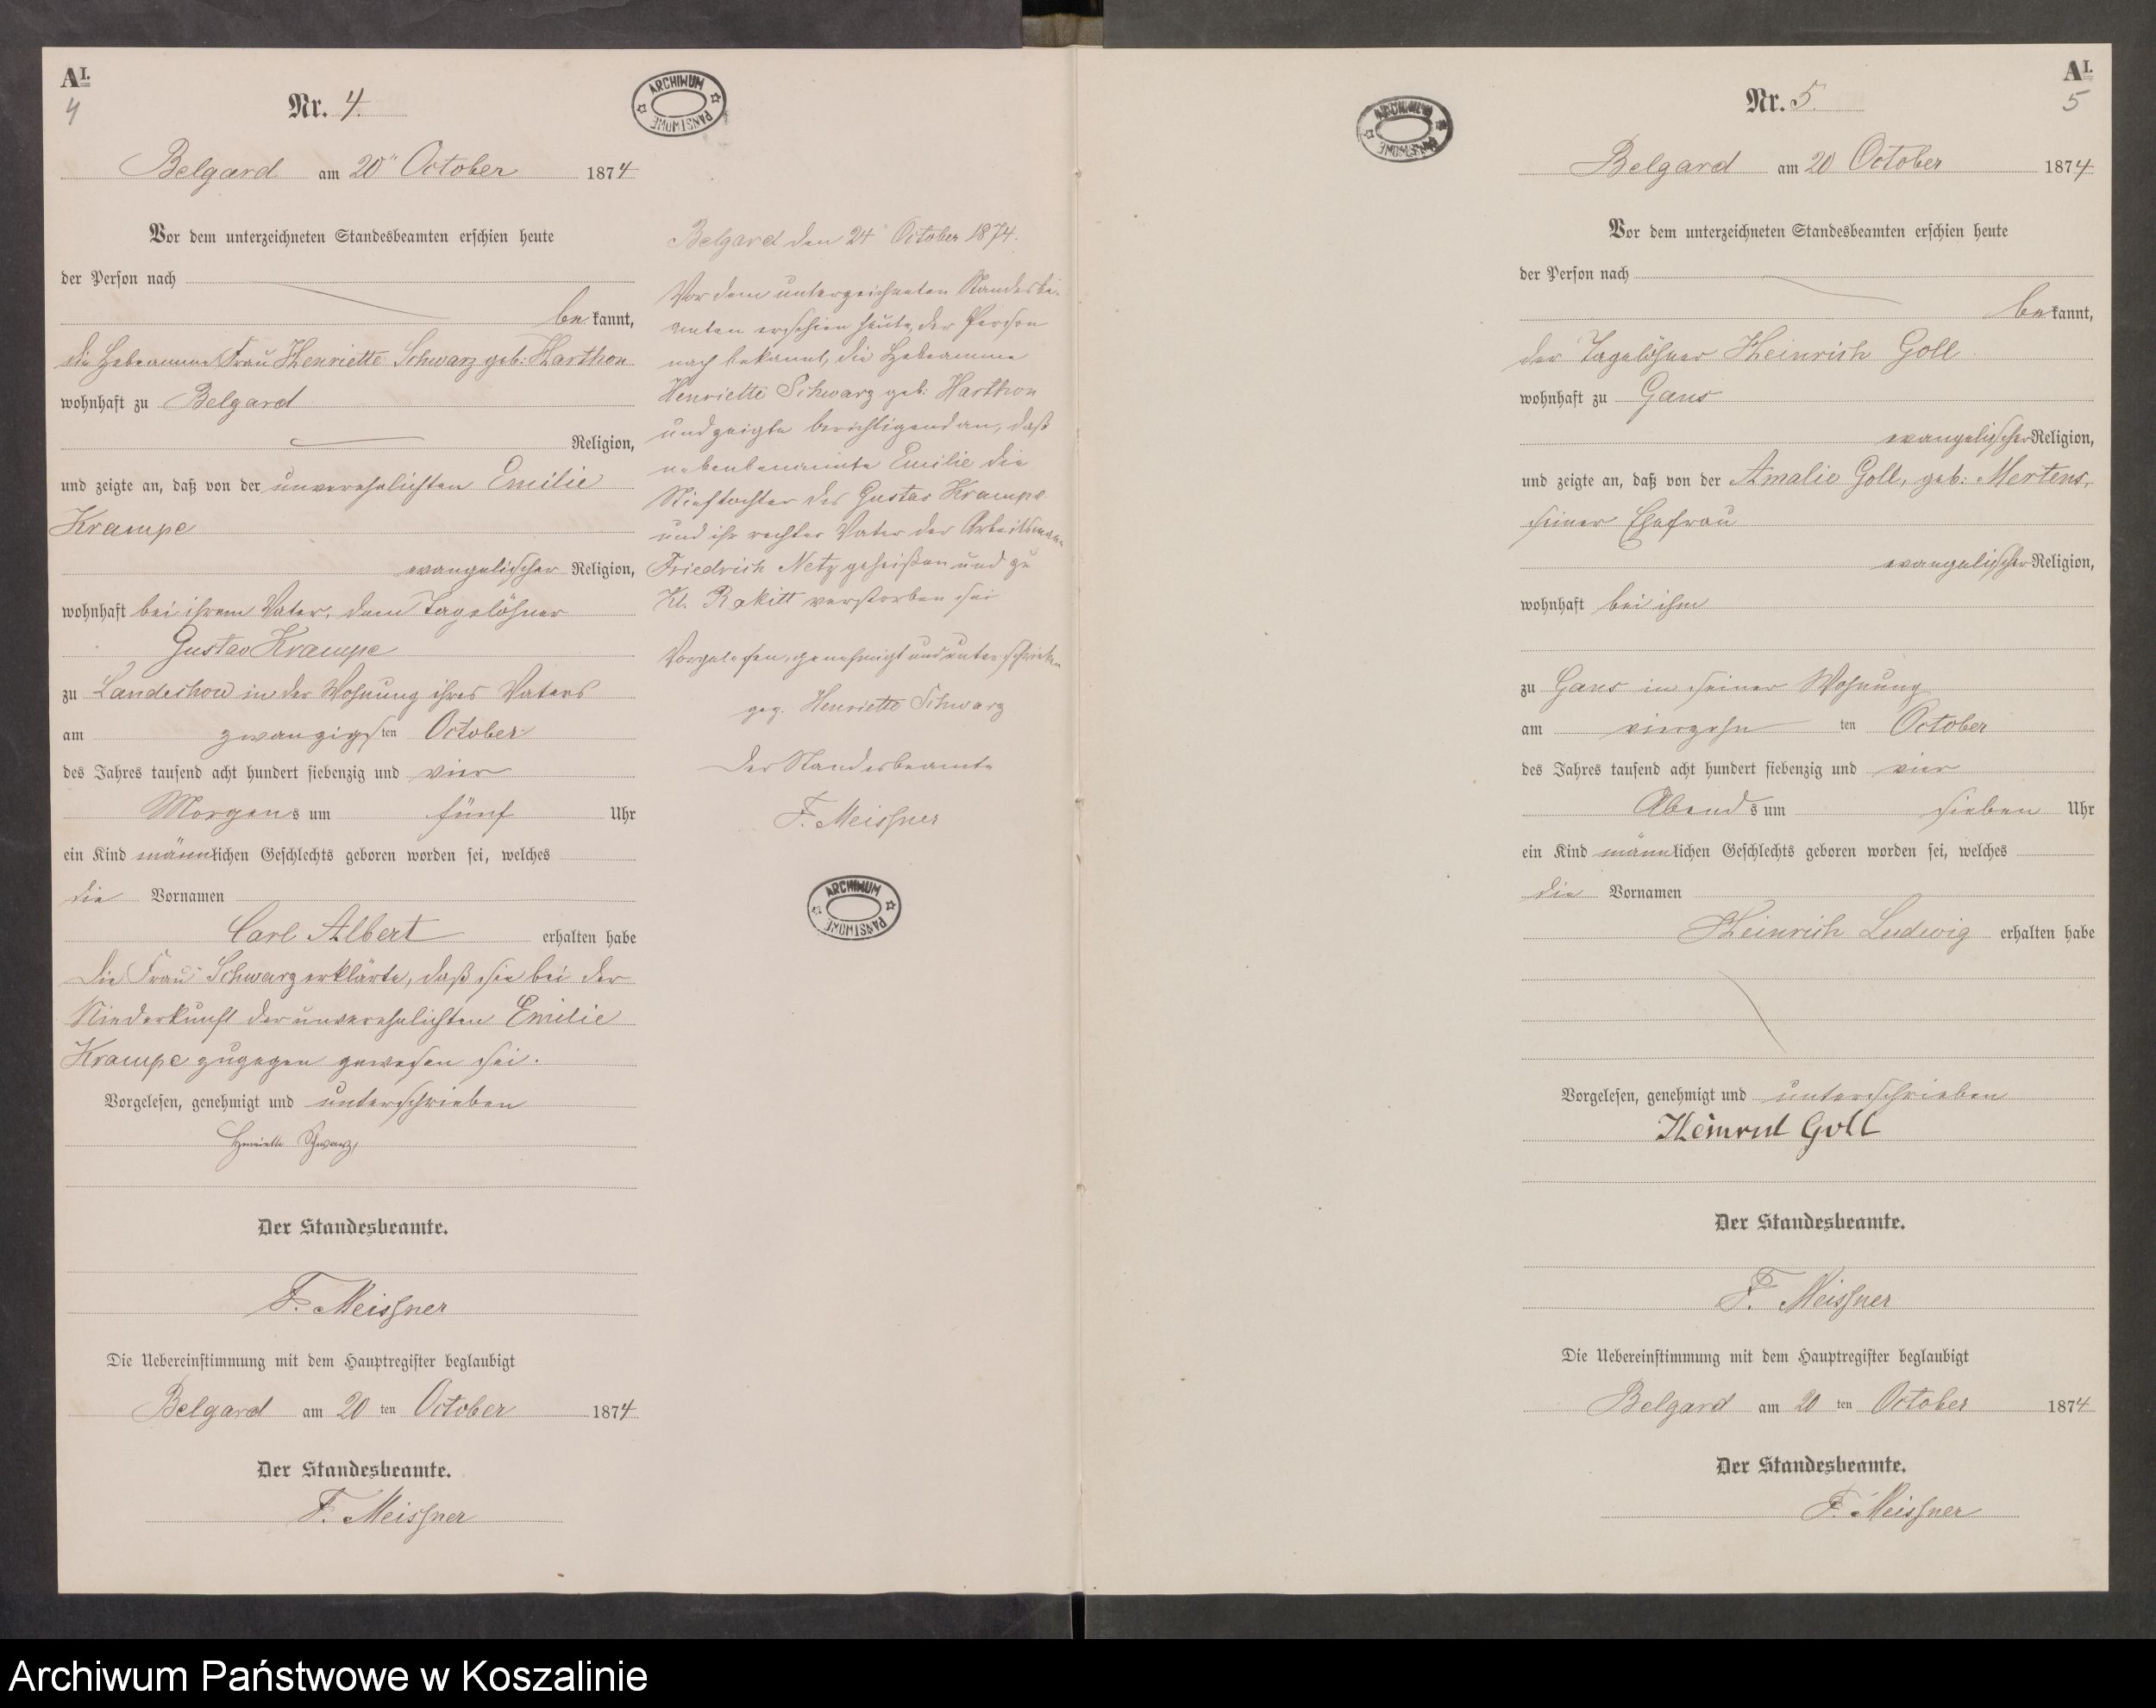 AI.
4
Nr. 4.
Belgard am 20n October 1874
Vor dem unterzeichneten Standesbeamten erschien heute
der Person nach
bekannt,
die Hebeamme Frau Henriette Schwarz geb: Harthon
wohnhaft zu Belgard
Religion,
und zeigte an, daß von der unverehelichten Emilie
Krampe
evangelischer Religion,
wohnhaft bei ihrem Vater, dem Tagelöhner
Gustav Krampe
zu Landechow in der Wohnung ihres Vaters
am zwanzigsten October
des Jahres tausend acht hundert siebenzig und vier
Morgens um fünf Uhr
ein Kind männlichen Geschlechts geboren worden sei, welches
die Vornamen
Carl Albert erhalten habe
Die Frau Schwarz erklärte, daß sie bei der
Niederkunft der unverehelichten Emilie
Krampe zugegen gewesen sei.
Vorgelesen, genehmigt und unterschrieben
Henriette Schwarz,
Der Standesbeamte.
F. Meissner
Die Uebereinstimmung mit dem Hauptregister beglaubigt
Belgard am 20 ten October 1874
Der Standesbeamte.
F. Meissner
ARCHIWUM PAŃSTWOWE
Belgard den 24 October 1874.
Vor dem unterzeichneten Standesbe-
amten erschien heute, der Person
nach bekannt, die Hebeamme
Henriette Schwarz geb: Harthon
und zeigte berichtigend an, daß
nebenbenannte Emilie die
Stieftochter des Gustav Krampe
und ihr rechter Vater der Arbeitsmann
Friedrich Netz geheißen und zu
Kl. Rakitt verstorben sei
Vorgelesen, genehmigt und unterschrieben
gez. Henriette Schwarz
Der Standesbeamte
F. Meissner
ARCHIWUM PAŃSTWOWE
ARCHIWUM PAŃSTWOWE
AI.
5
Nr. 5.
Belgard am 20 October 1874
Vor dem unterzeichneten Standesbeamten erschien heute
der Person nach
bekannt,
der Tagelöhner Heinrich Goll
wohnhaft zu Gans
evangelischer Religion,
und zeigte an, daß von der Amalie Goll, geb: Mertens,
seiner Ehefrau
evangelischer Religion,
wohnhaft bei ihm
zu Gans in seiner Wohnung
am vierzehn ten October
des Jahres tausend acht hundert siebenzig und vier
Abends um sieben Uhr
ein Kind männlichen Geschlechts geboren worden sei, welches
die Vornamen
Heinrich Ludwig erhalten habe
Vorgelesen, genehmigt und unterschrieben
Heinrich Goll
Der Standesbeamte.
F. Meissner
Die Uebereinstimmung mit dem Hauptregister beglaubigt
Belgard am 20 ten October 1874
Der Standesbeamte.
F. Meissner
Archiwum Państwowe w Koszalinie